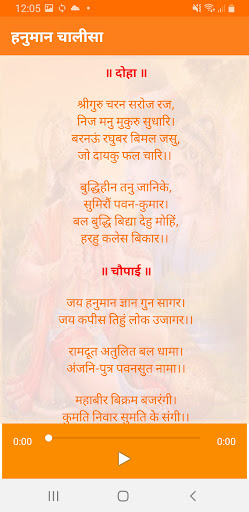 12:05
हनुमान चालीसा
॥ दोहा ॥
श्रीगुरु चरन सरोज रज,
निज मनु मुकुरु सुधारि।
बरनऊं रघुबर बिमल जसु,
जो दायकु फल चारि।।
बुद्धिहीन तनु जानिके,
सुमिरौं पवन-कुमार।
बल बुद्धि बिद्या देहु मोहिं,
हरहु कलेस बिकार।।
॥ चौपाई ॥
जय हनुमान ज्ञान गुन सागर।
जय कपीस तिहुं लोक उजागर।।
रामदूत अतुलित बल धामा।
अंजनि-पुत्र पवनसुत नामा।।
महाबीर बिक्रम बजरंगी।
कुमति निवार सुमति के संगी।।
0:00
0:00